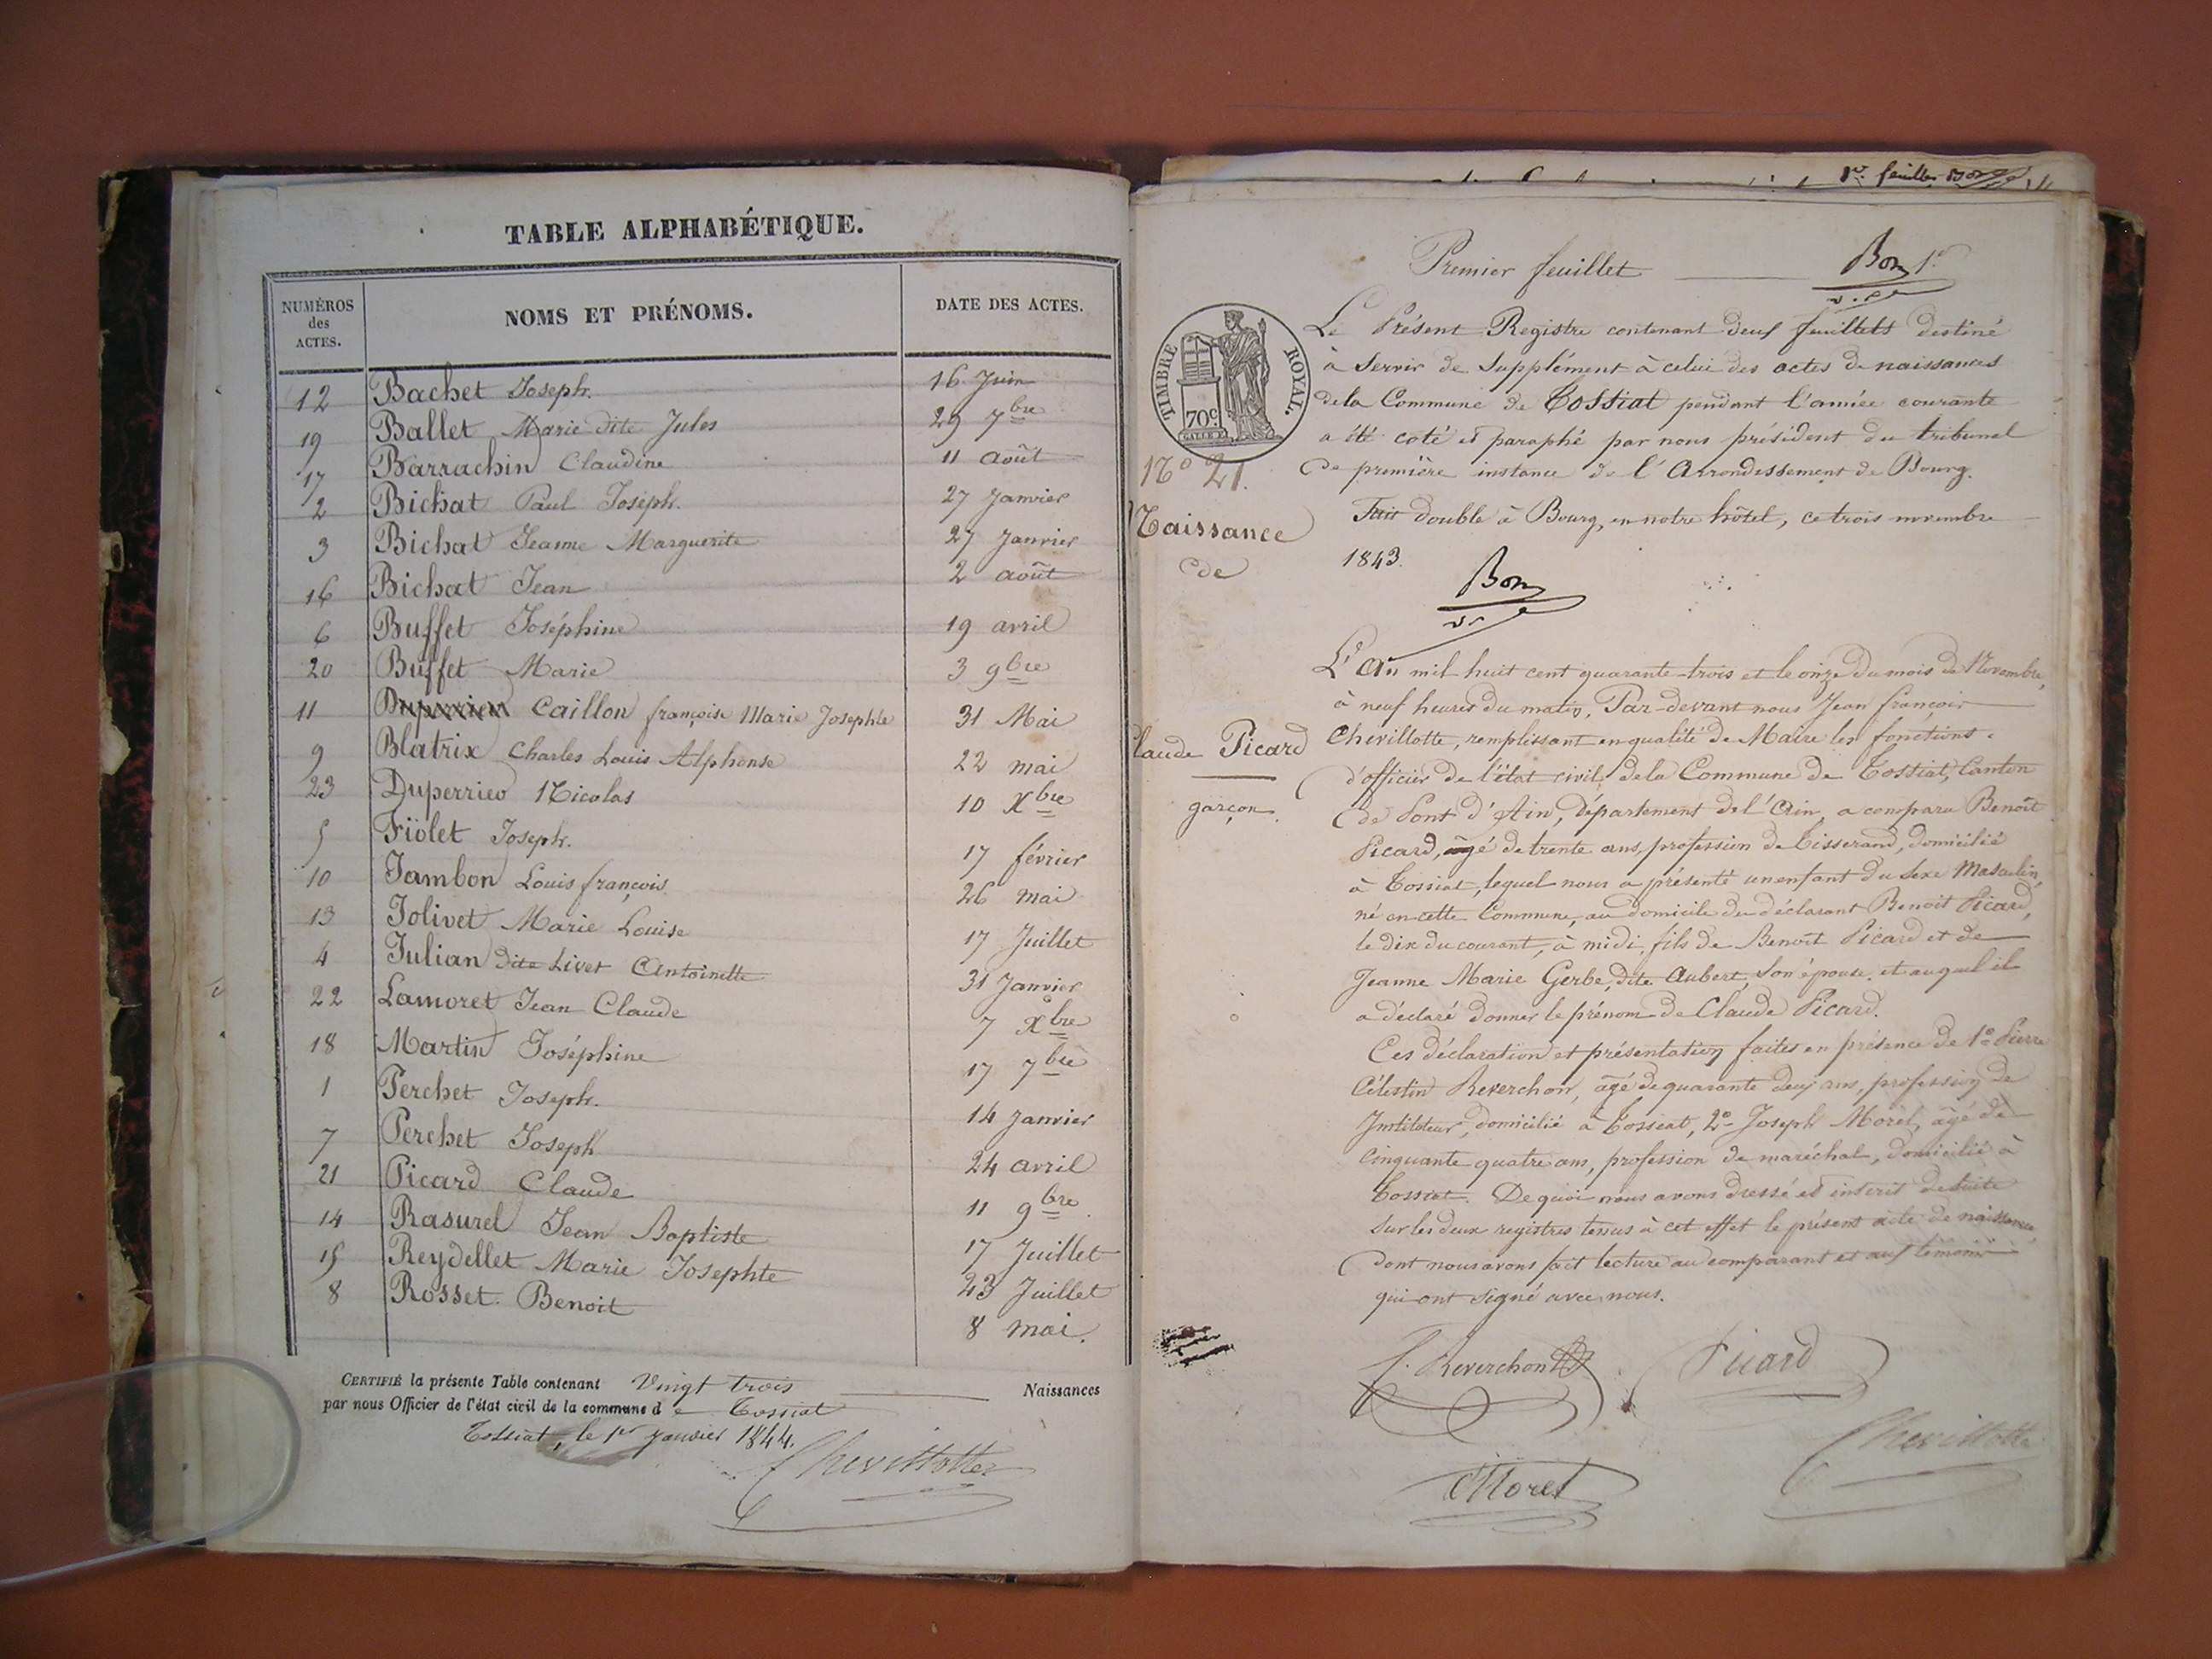 TABLE ALPHABÉTIQUE.
NUMÉROS des ACTES.
NOMS ET PRÉNOMS.
DATE DES ACTES.
12 Bachet Joseph. 16 Juin
19 Ballet Marie dite Jules 29 7bre
17 Barrachin Claudine 11 août
2 Bichat Paul Joseph. 27 Janvier
3 Bichat Jeanne Marguerite 27 Janvier
16 Bichat Jean 2 août
6 Buffet Joséphine 19 avril
20 Buffet Marie 3 9bre
11 Caillon françoise Marie Josephte 31 Mai
9 Blatrix Charles Louis Alphonse 22 mai
23 Duperrieu Nicolas 10 Xbre
5 Fiolet Joseph. 17 février
10 Jambon Louis françois. 26 mai
13 Jolivet Marie Louise 17 Juillet
4 Julian dite Livet Antoinette 31 Janvier
22 Lamoret Jean Claude 7 Xbre
18 Martin Joséphine 17 7bre
1 Perchet Joseph. 14 Janvier
7 Perchet Joseph 24 avril
21 Picard Claude 11 9bre.
14 Rasurel Jean Baptiste 17 Juillet
15 Reydellet Marie Josephte 23 Juillet
8 Rosset Benoit 8 mai.
CERTIFIÉ la présente Table contenant Vingt trois Naissances
par nous Officier de l'état civil de la commune de Tossiat
Tossiat, le 1er Janvier 1844.
Chevillotte
1er feuillet Bon
Premier feuillet Bon 1er
v. p
TIMBRE ROYAL.
70c
Le Présent Registre contenant deux feuillets destiné
à servir de Supplément à celui des actes de naissances
de la Commune de Tossiat pendant l'année courante
a été coté et paraphé par nous président du tribunal
de première instance de l'Arrondissement de Bourg.
Fait double à Bourg, en notre hôtel, ce trois novembre
1843.
Bon
N° 21.
Naissance
de
Claude Picard
garçon.
L'An mil huit cent quarante-trois et le onze du mois de Novembre,
à neuf heures du matin, Par-devant nous Jean françois
Chevillotte, remplissant en qualité de Maire les fonctions
d'officier de l'état civil de la Commune de Tossiat, Canton
de Pont d'Ain, département de l'Ain, a comparu Benoît
Picard, âgé de trente ans, profession de Tisserand, domicilié
à Tossiat, lequel nous a présenté un enfant du sexe Masculin,
né en cette Commune, au domicile du déclarant Benoît Picard,
le dix du courant, à midi, fils de Benoît Picard et de
Jeanne Marie Gerbe, dite Aubert, son épouse, et auquel il
a déclaré donner le prénom de Claude Picard.
Ces déclaration et présentation faites en présence de 1° Pierre
Célestin Reverchon, âgé de quarante deux ans, profession de
Instituteur, domicilié à Tossiat, 2° Joseph Morel, âgé de
cinquante quatre ans, profession de maréchal, domicilié à
Tossiat. De quoi nous avons dressé et inscrit de suite
sur les deux registres tenus à cet effet le présent acte de naissance
dont nous avons fait lecture au comparant et aux témoins
qui ont signé avec nous.
Reverchon Picard
Chevillotte
Morel